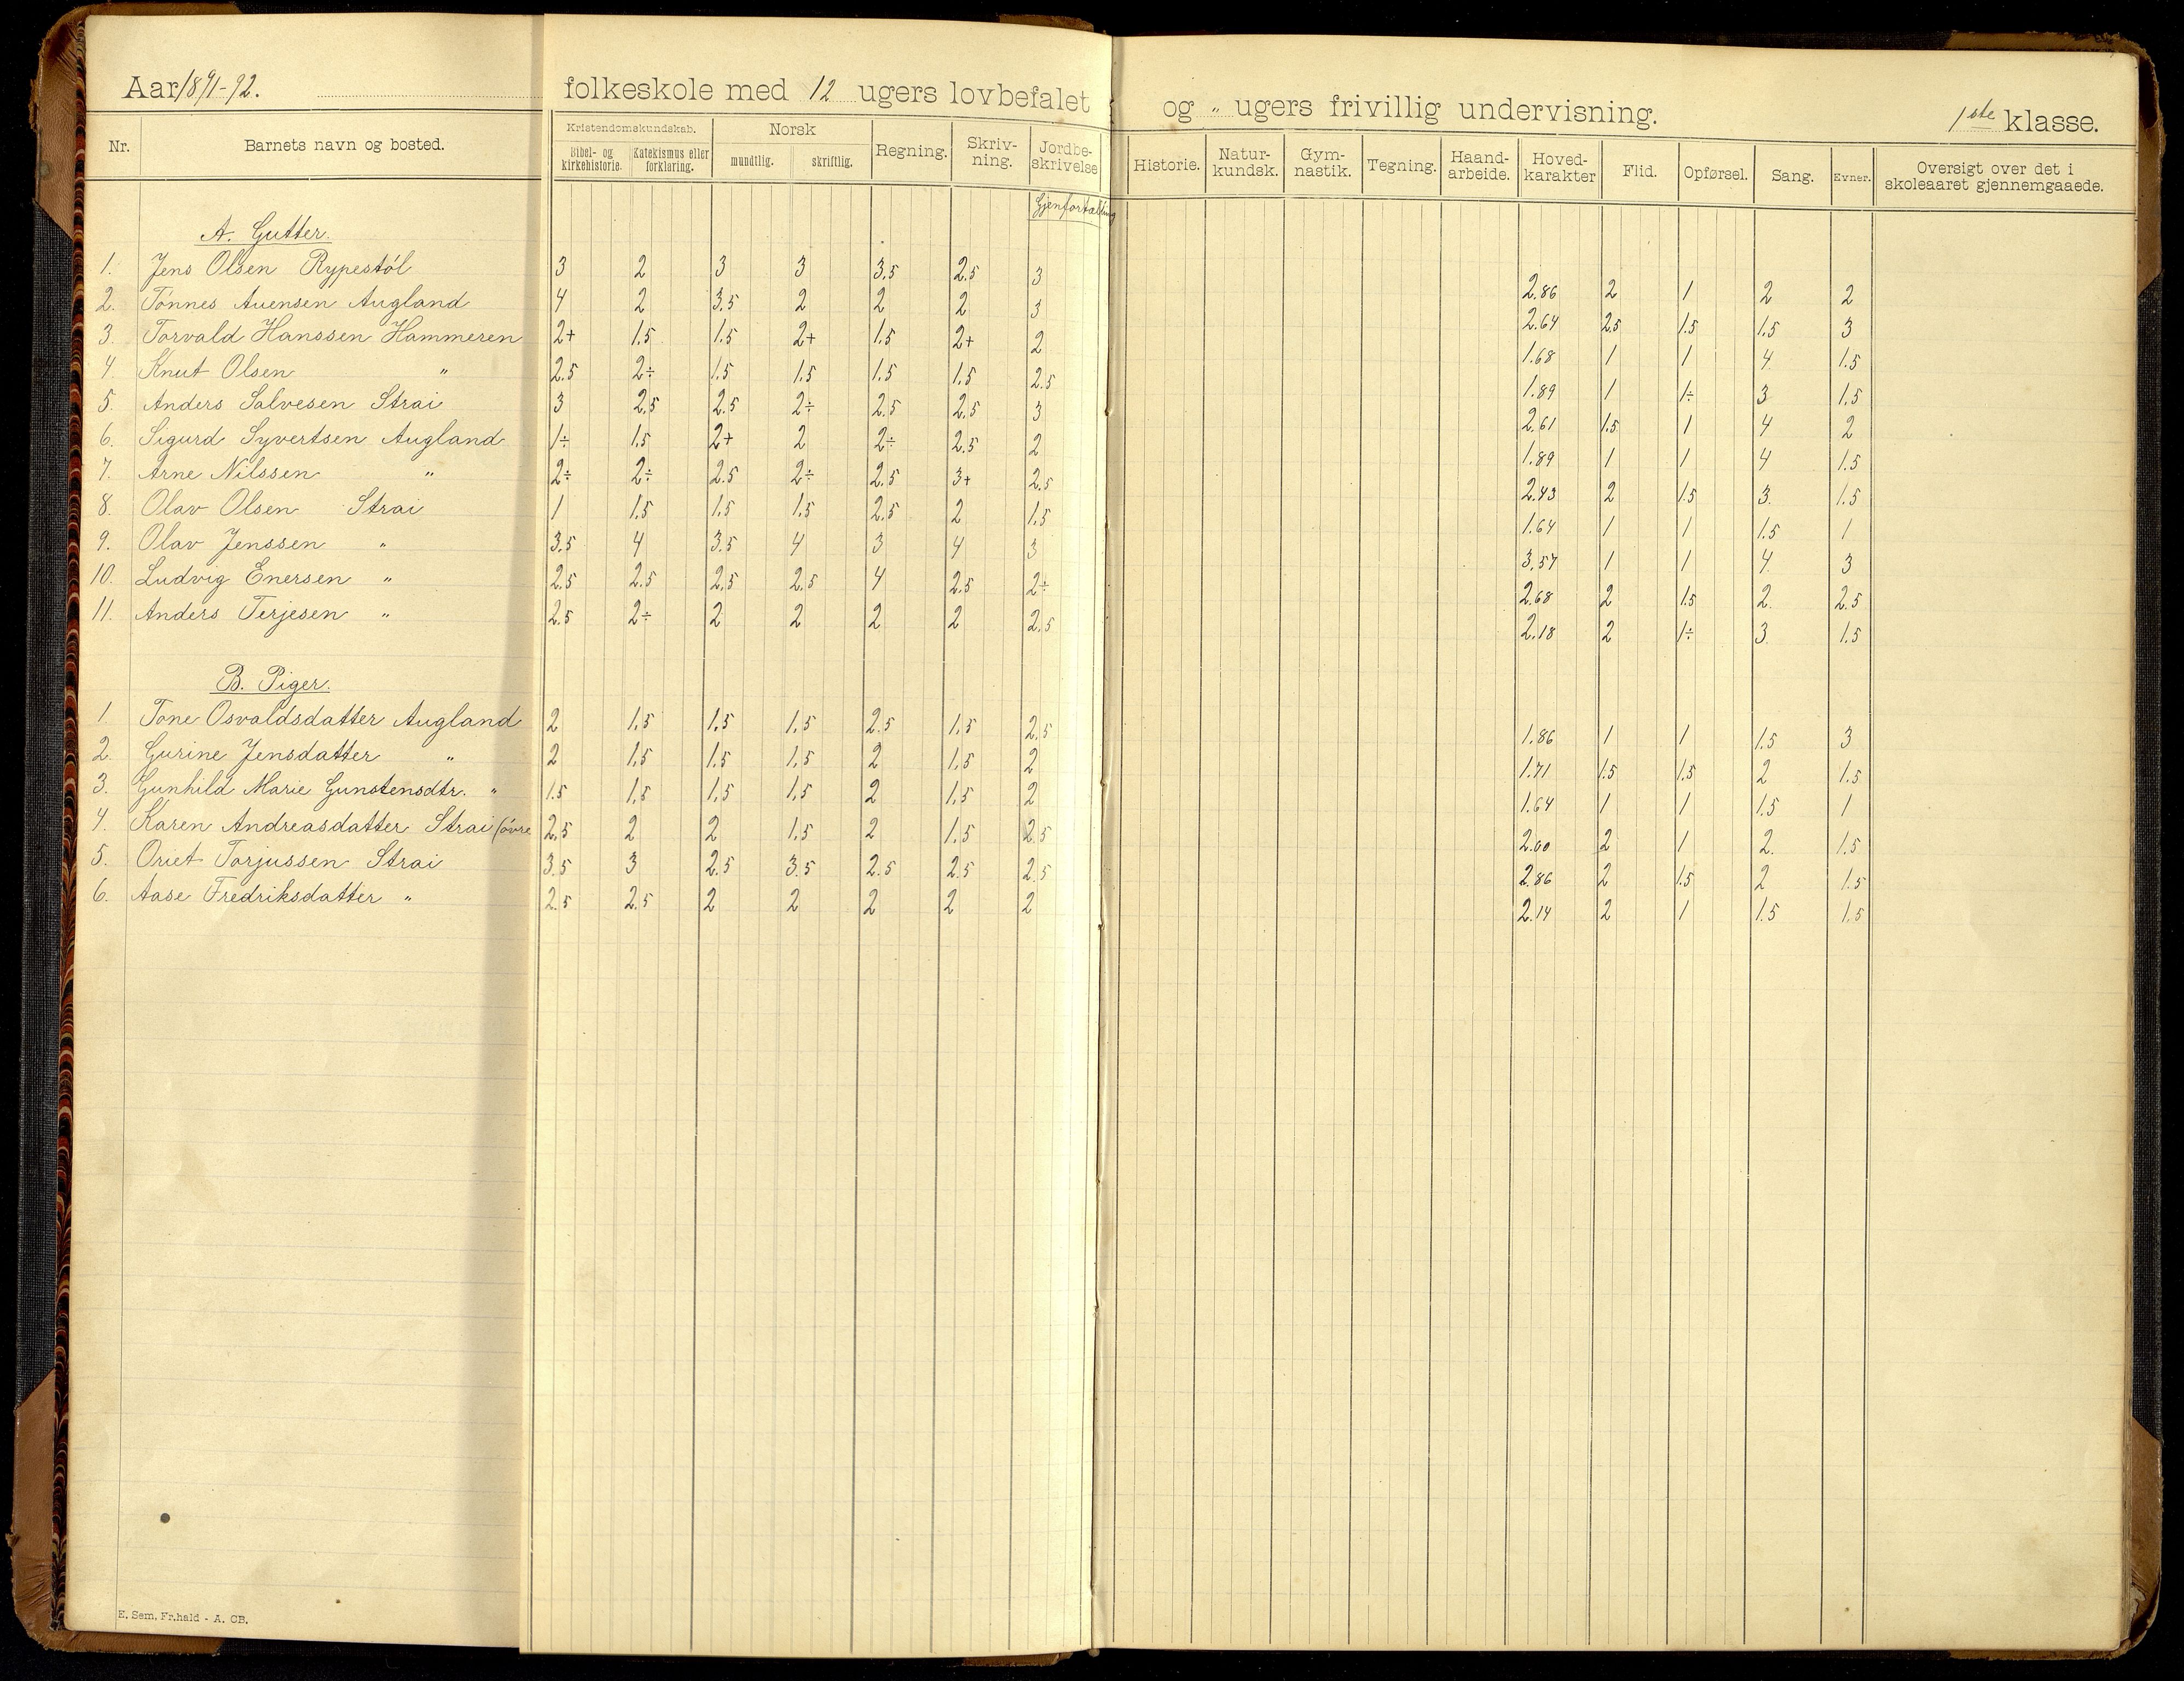 Aar 1891-92. folkeskole med 12 ugers lovbefalet og " ugers frivillig undervisning. 1ste klasse.
Nr. Barnets navn og bosted. Kristendomskundskab. Bibel- og kirkehistorie. Katekismus eller forklaring. Norsk mundtlig. skriftlig. Regning. Skriv-ning. Jordbe-skrivelse Historie. Natur-kundsk. Gym-nastik. Tegning. Haand-arbeide. Hoved-karakter Flid. Opførsel. Sang. Evner. Oversigt over det i skoleaaret gjennemgaaede.
Gjenfortælling
A. Gutter.
1. Jens Olsen Rypestøl 3 2 3 3 3.5 2.5 3 2.86 2 1 2 2
2. Tønnes Auensen Augland 4 2 3.5 2 2 2 3 2.64 2.5 1.5 1.5 3
3. Torvald Hanssen Hammeren 2+ 1.5 1.5 2+ 1.5 2+ 2 1.68 1 1 4. 1.5
4. Knut Olsen " 2.5 2÷ 1.5 1.5 1.5 1.5 2.5 1.89 1 1÷ 3 1.5
5. Anders Salvesen Strai 3 2.5 2.5 2÷ 2.5 2.5 3 2.61 1.5 1 4 2
6. Sigurd Syvertsen Augland 1÷ 1.5 2+ 2 2÷ 2.5 2 1.89 1 1 4 1.5
7. Arne Nilssen " 2÷ 2÷ 2.5 2÷ 2.5 3+ 2.5 2.43 2 1.5 3. 1.5
8. Olav Olsen Strai 1 1.5 1.5 1.5 2.5 2 1.5 1.64 1 1 1.5 1
9. Olav Jenssen " 3.5 4 3.5 4 3 4 3 3.57 1 1 4. 3
10. Ludvig Enersen " 2.5 2.5 2.5 2.5 4 2.5 2÷ 2.68 2 1.5 2. 2.5
11. Anders Terjesen " 2.5 2÷ 2 2 2 2 2.5 2.18 2 1÷ 3. 1.5
B. Piger.
1. Tone Osvaldsdatter Augland 2 1.5 1.5 1.5 2.5 1.5 2.5 1.86 1 1 1.5 3
2. Gurine Jensdatter " 2 1.5 1.5 1.5 2 1.5 2 1.71 1.5 1.5 2 1.5
3. Gunhild Marie Gunstensdtr. " 1.5 1.5 1.5 1.5 2 1.5 2 1.64 1 1 1.5 1
4. Karen Andreasdatter Strai (øvre 2.5 2 2 1.5 2 1.5 2.5 2.00 2 1 2. 1.5
5. Oriet Torjussen Strai 3.5 3 2.5 3.5 2.5 2.5 2.5 2.86 2 1.5 2 1.5
6. Aase Fredriksdatter " 2.5 2.5 2 2 2 2 2 2.14 2 1 1.5 1.5
E. Sem, Fr.hald - A. CB.